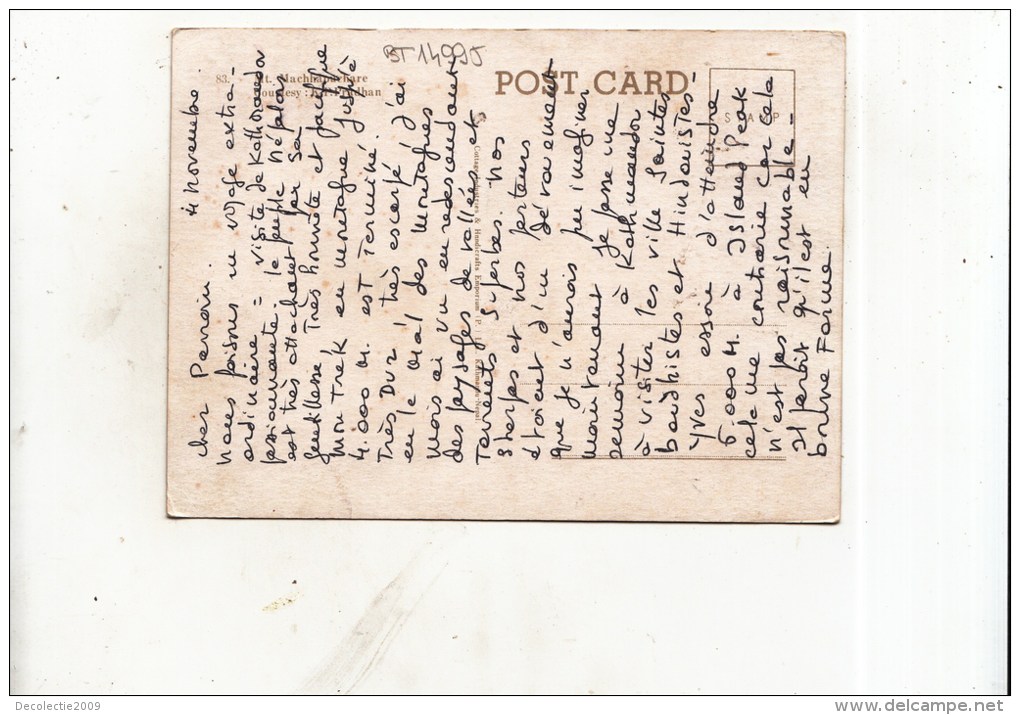 BT 14995
83. Mt. Machhapuchare
Courtesy : B.P. Pradhan
POST CARD
STAMP
4 novembre
cher Parrain
nous faisons un voyage extra-
ordinaire = visite de Kathmandou
passionnante. le peuple népalais
est très attachant par sa
gentillesse très honnête et pacifique
Mon Trek en montagne jusqu'à
4.000 M. est Terminé.
Très Dur très escarpé j'ai
eu le mal des montagnes
mais ai vu en redescendant
des paysages de vallées et
Torrents superbes. nos
Sherpas et nos porteurs
étaient d'un dévouement
que je n'aurais pu imaginer
maintenant je passe une
semaine à Kathmandou
à visiter les ville Saintes
boudhistes et Hindouistes -
Yves essaie d'atteindre
6.000 M. à Island Peak
cela me contrarie car cela
n'est pas raisonnable -
il paraît qu'il est en
bonne Forme.
Cottage Industries & Handicrafts Emporium
Decolectie2009
http://www.delcampe.net